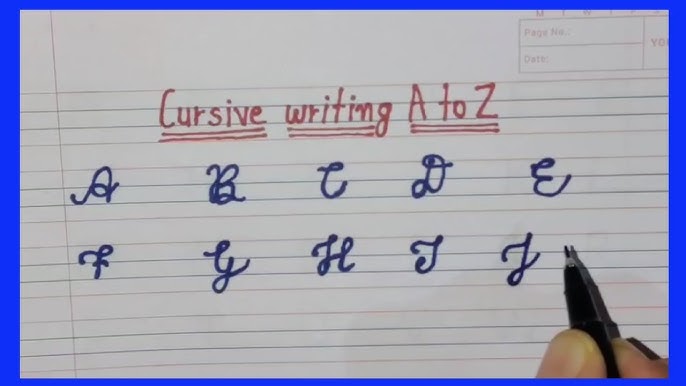 M T W T F S
Page No.:
YOU
Date:
Cursive writing A to Z
A B C D E
F G H I J